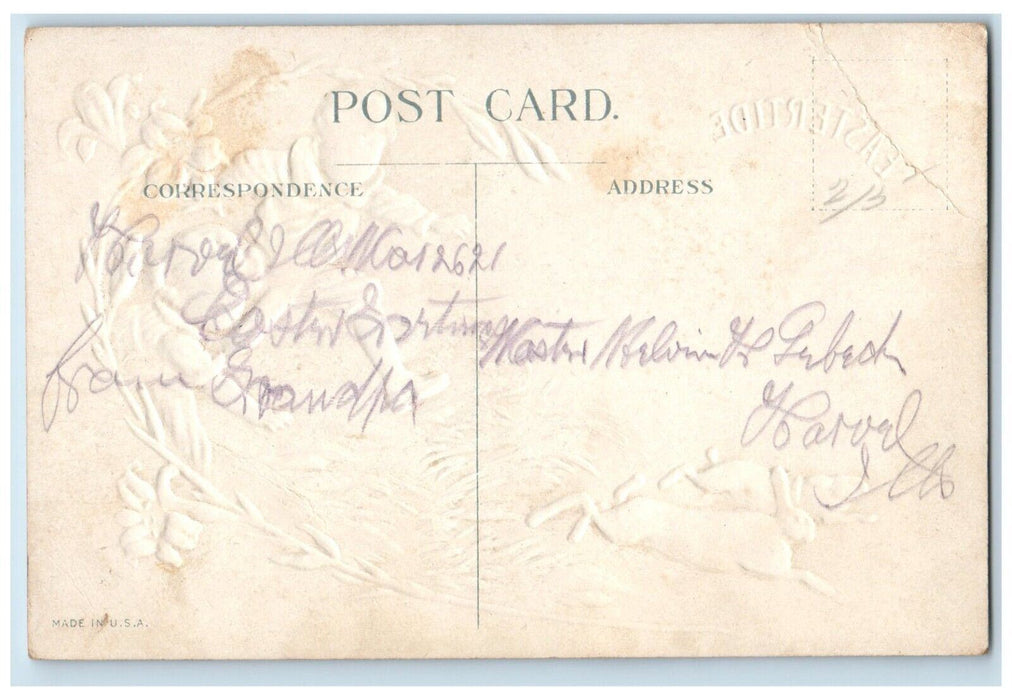 POST CARD.
EASTERTIDE
CORRESPONDENCE
ADDRESS
2/5
Harvel Ills Mar 26 21
Easter
from Grandpa
Master Melvin H
Harvel
Ills
MADE IN U.S.A.